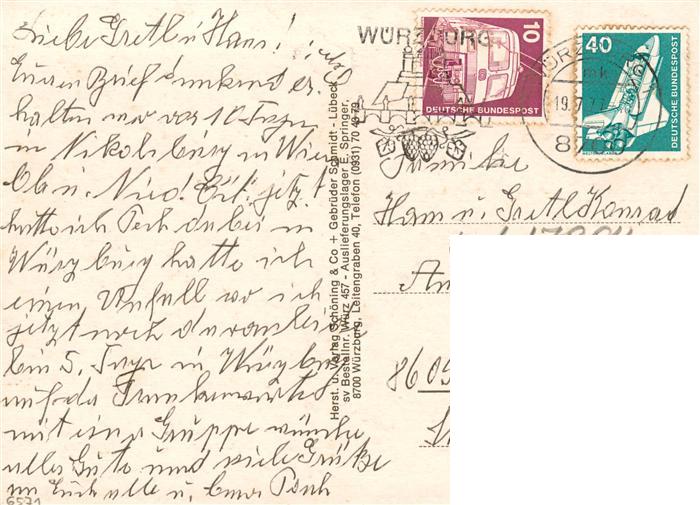 Liebe Gretl u Hans!
Euren Brief dankend er
halten war vor 10 Tagen
in Nikolsburg in Wien
jetzt
hatte ich Pech dabei in
Würzburg hatte ich
einen Unfall wo ich
jetzt noch daran leide
bin 5 Tage in Würzburg
auf der
mit einer Gruppe wünsche
alles Gute und viele Grüße
an Euch alle u.
6571
Herst. u. Verlag Schöning & Co + Gebrüder Schmidt - Lübeck
sv Bestellnr. Würz 457 - Auslieferungslager E. Springer,
8700 Würzburg, Leitengraben 40, Telefon (0931) 70
WÜRZBURG
10
DEUTSCHE BUNDESPOST
40
DEUTSCHE BUNDESPOST
mk
Familie
Hans u. Gretl Konrad
An
8605